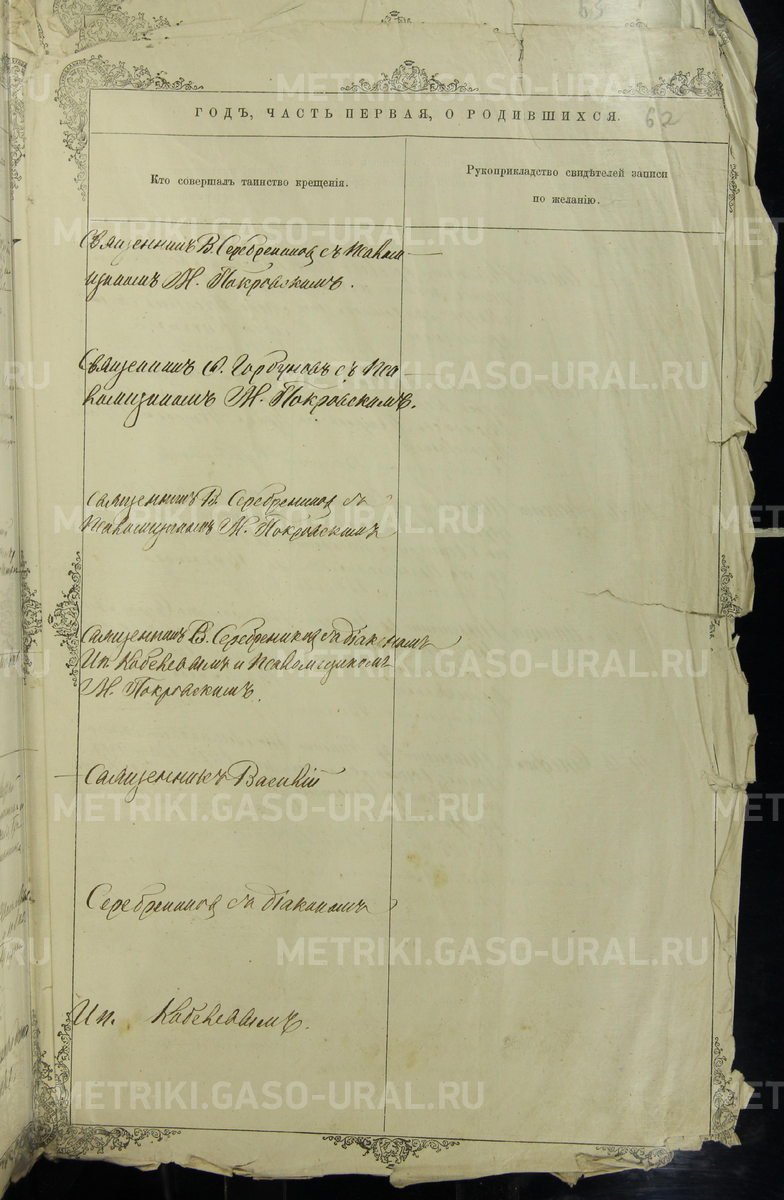 62
ГОДЪ, ЧАСТЬ ПЕРВАЯ, О РОДИВШИХСЯ.
Кто совершалъ таинство крещенія.
Рукоприкладство свидѣтелей записи
по желанію.
Священникъ В. Серебрениковъ съ Псалом-
щикомъ М. Покровскимъ.
Священникъ Ѳ. Горбуновъ съ Пса-
ломщикомъ М. Покровскимъ.
Священникъ В. Серебрениковъ съ
Псаломщикомъ М. Покровскимъ
Священникъ В. Серебрениковъ съ діакономъ
Ип. и Псаломщикомъ
М. Покровскимъ.
Священникъ Василій
Серебрениковъ съ діакономъ
Ип.
METRIKI.GASO-URAL.RU